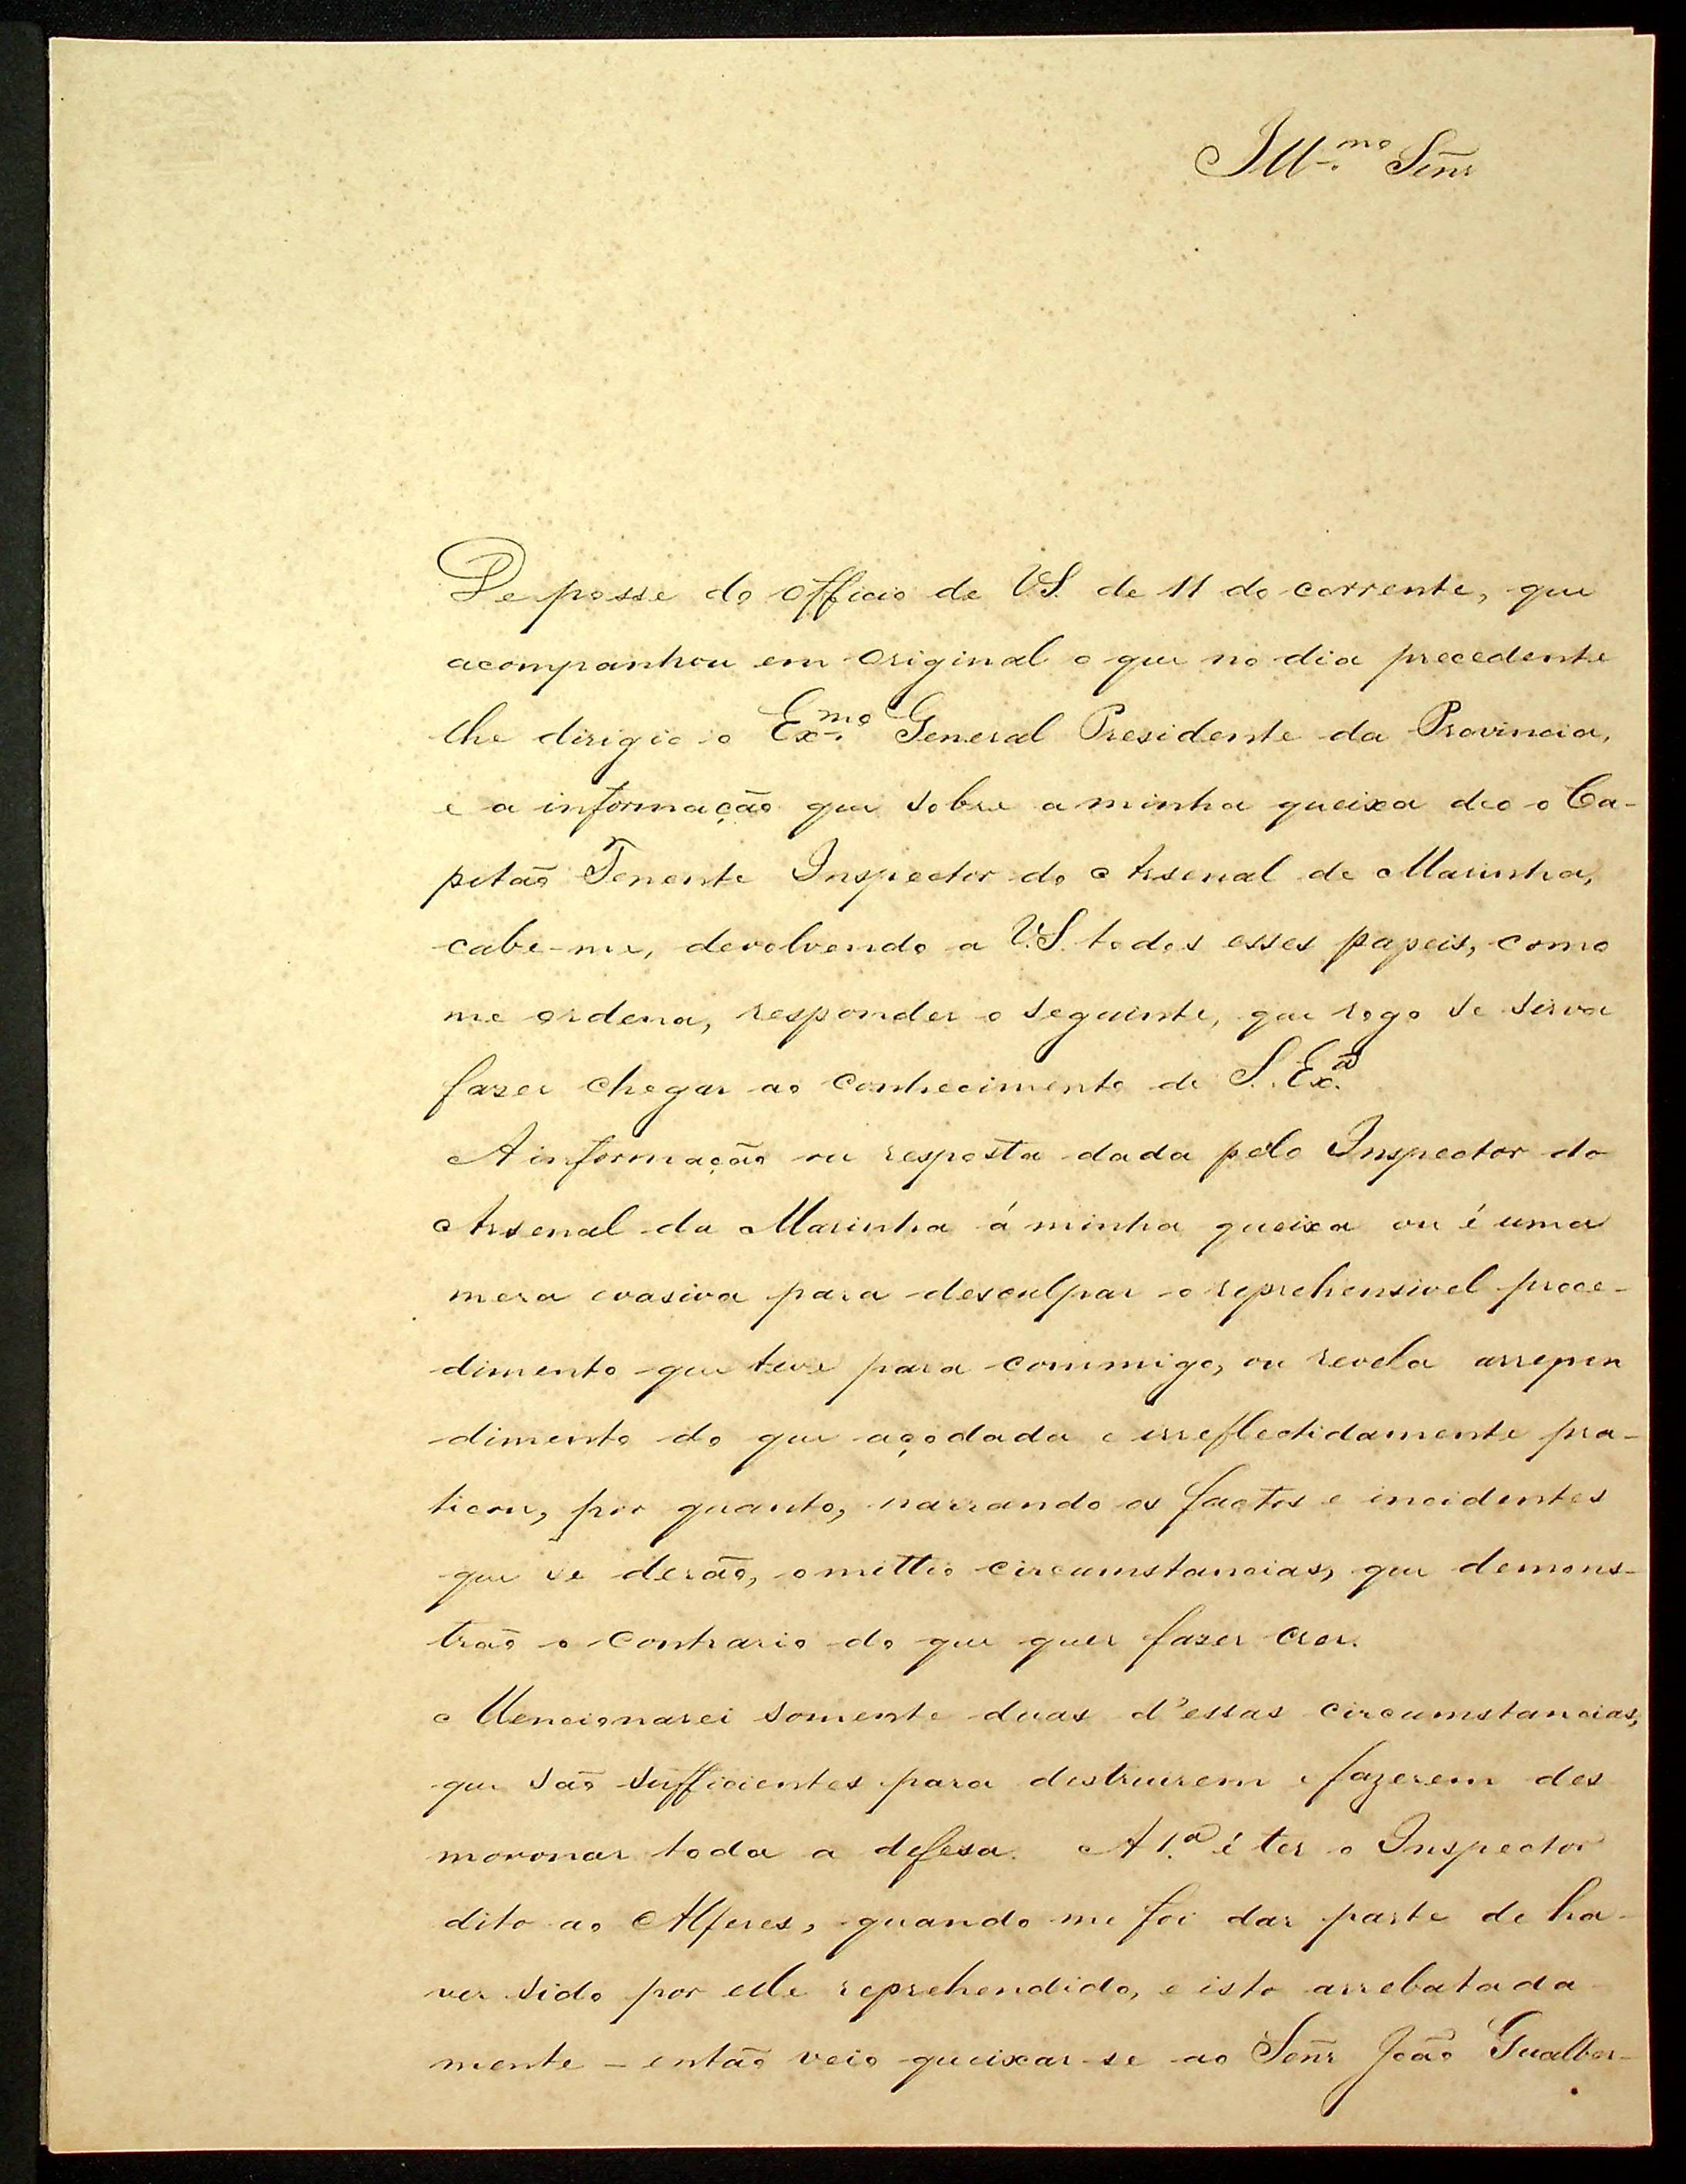 Ill.mo Senr
De posse do officio de V.S. de 11 do corrente, que
acompanhou em original o que no dia precedente
lhe dirigio o Ex.mo General Presidente da Provincia,
e a informação que sobre a minha queixa deo o Ca-
pitão Tenente Inspector do Arsenal de Marinha,
cabe-me, devolvendo a V.S. todos esses papeis, como
me ordena, responder o seguinte, que rogo se sirva
faser chegar ao conhecimento de S. Ex.a
A informação ou resposta dada pelo Inspector do
Arsenal da Marinha á minha queixa ou é uma
mera evasiva para desculpar o reprehensivel proce-
dimento que teve para commigo, ou revela arrepen
dimento do que açodada e irreflectidamente pra-
ticou, por quanto, narrando os factos e incidentes
que se derão, omittio circumstancias, que demons-
trão o contrario do que quer faser crer.
Mencionarei somente duas d'essas circumstancias,
que são sufficientes para destruirem e fazerem des
moronar toda a defesa. A 1.a é ter o Inspector
dito ao Alferes, quando me foi dar parte de ha-
ver sido por elle reprehendido, e isto arrebatada-
mente - então veio queixar-se ao Senr João Gualber-